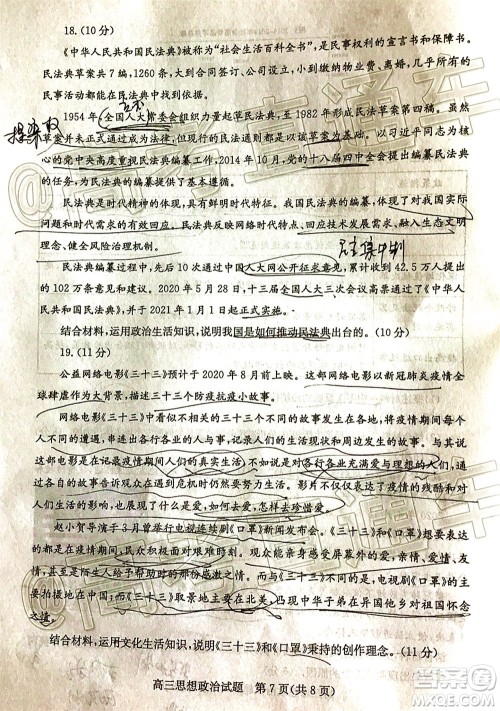 18. (10分)
《中华人民共和国民法典》被称为“社会生活百科全书”,是民事权利的宣言书和保障书。
民法典草案共7编,1260条,大到合同签订、公司设立,小到缴纳物业费、离婚,几乎所有的民
事活动都能在民法典中找到依据。
1954年,全国人大常委会组织力量起草民法典,至1982年形成民法草案第四稿。虽因
草案并未正式通过成为法律,但现行的民法通则是以该草案为基础。以习近平同志为核
心的党中央高度重视民法典编纂工作,2014年10月,党的十八届四中全会提出编纂民法典
的任务,为民法典的编纂提供了基本遵循。
民法典是时代精神的体现,具有鲜明时代特征。我国民法典的编纂,体现了对我国实际
问题和时代需求的有效回应。民法典反映网络时代特点、回应技术发展需求、融入生态文明
理念、健全风险治理机制。
民法典编纂过程中,先后10次通过中国人大网公开征求意见,累计收到42.5万人提出
的102万条意见和建议。2020年5月28日,十三届全国人大三次会议高票通过了《中华人
民共和国民法典》,并于2021年1月1日起正式实施。
结合材料,运用政治生活知识,说明我国是如何推动民法典出台的。(10分)
19. (11分)
公益网络电影《三十三》预计于2020年8月前上映。这部网络电影以新冠肺炎疫情全
球肆虐作为大背景,描述了三十三个防疫抗疫小故事。
网络电影《三十三》中看似不相关的三十三个不同的故事发生在各地,将疫情期间每个
人不同的遭遇,串连出各行各业的人与事,记录人们的生活现状和周边发生的故事。与其说
这部电影是在记录疫情期间人们的真实生活,不如说是对各行各业充满爱与理想的人们,通
过各自的故事告诉观众在遇到危机时仍然要努力生活。影片不仅仅表达了疫情的残酷和对
人们生活的影响,也展现了什么是爱,如何去爱,怎样去珍惜爱。
赵小贺导演于3月曾举行电视连续剧《口罩》新闻发布会。《三十三》和《口罩》想要表达的
都是在疫情期间,民众积极面对艰难时刻。两者都将普通民众的生活展现在屏幕外,亲情、爱情、友
情,甚至是陌生人给予帮助时的那份感激之情。而与《三十三》不同的是,电视剧《口罩》的主
要拍摄地在中国,而《三十三》取景地主要在北美,凸现中华子弟在异国他乡对祖国怀念
之情。
结合材料,运用文化生活知识,说明《三十三》和《口罩》秉持的创作理念。(11分)
高三思想政治试题 第7页(共8页)